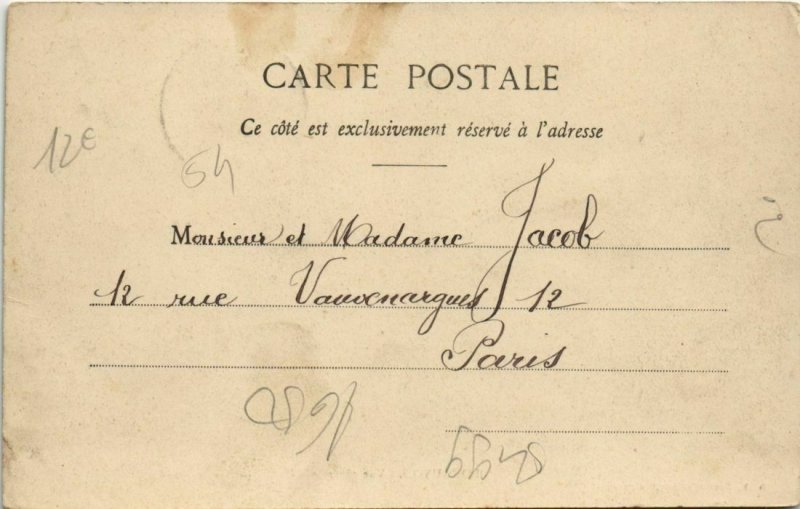 CARTE POSTALE
Ce côté est exclusivement réservé à l'adresse
12€
54
Monsieur et Madame Jacob
12 rue Vauvenargues 12
Paris